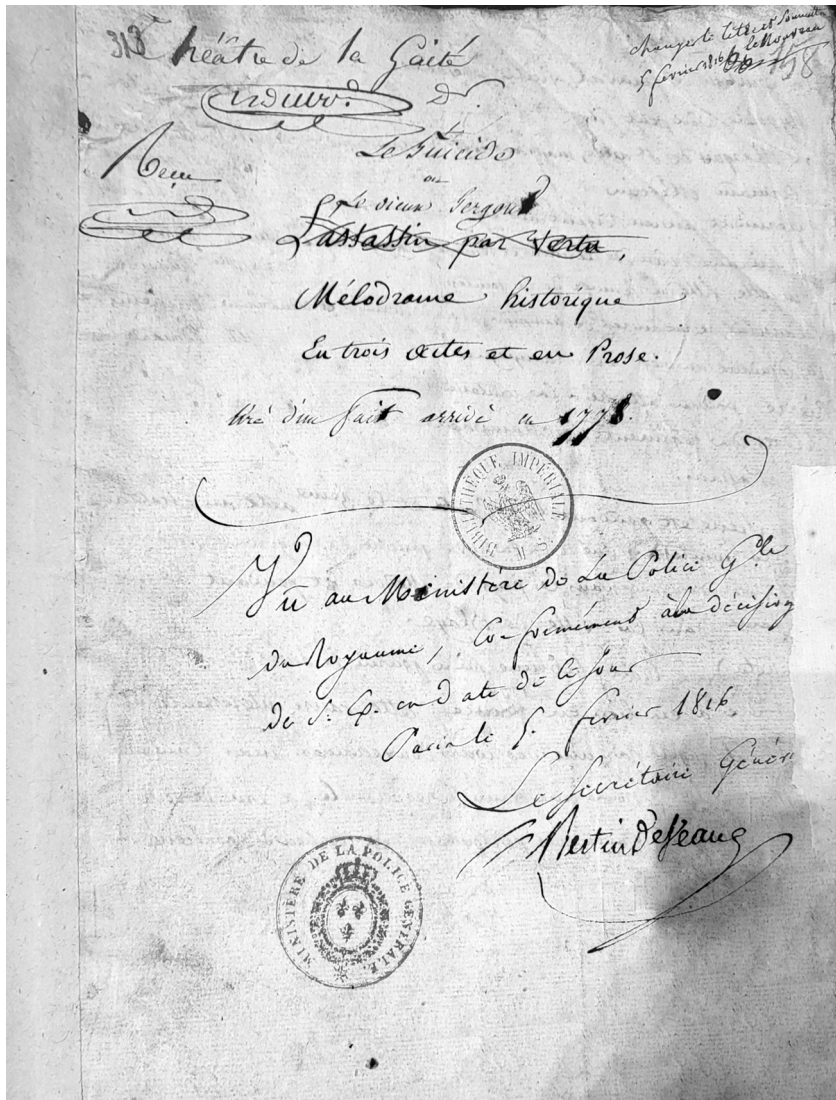 313
Théâtre de la Gaité
changer le titre et soumettre
le nouveau
5 février 1816
Reçu
Le Suicide
ou
Le vieux Sergent
L'assassin par Vertu,
Mélodrame historique
En trois actes et en Prose.
tiré d'un fait arrivé en 1778.
BIBLIOTHÈQUE IMPÉRIALE
Vû au Ministère de La Police Gle
du Royaume, Conformément à la décision
de S. E. en date de ce Jour
Paris le 5. fevrier 1816
Le Secrétaire Génér
Bertin Deveaux
MINISTÈRE DE LA POLICE GÉNÉRALE